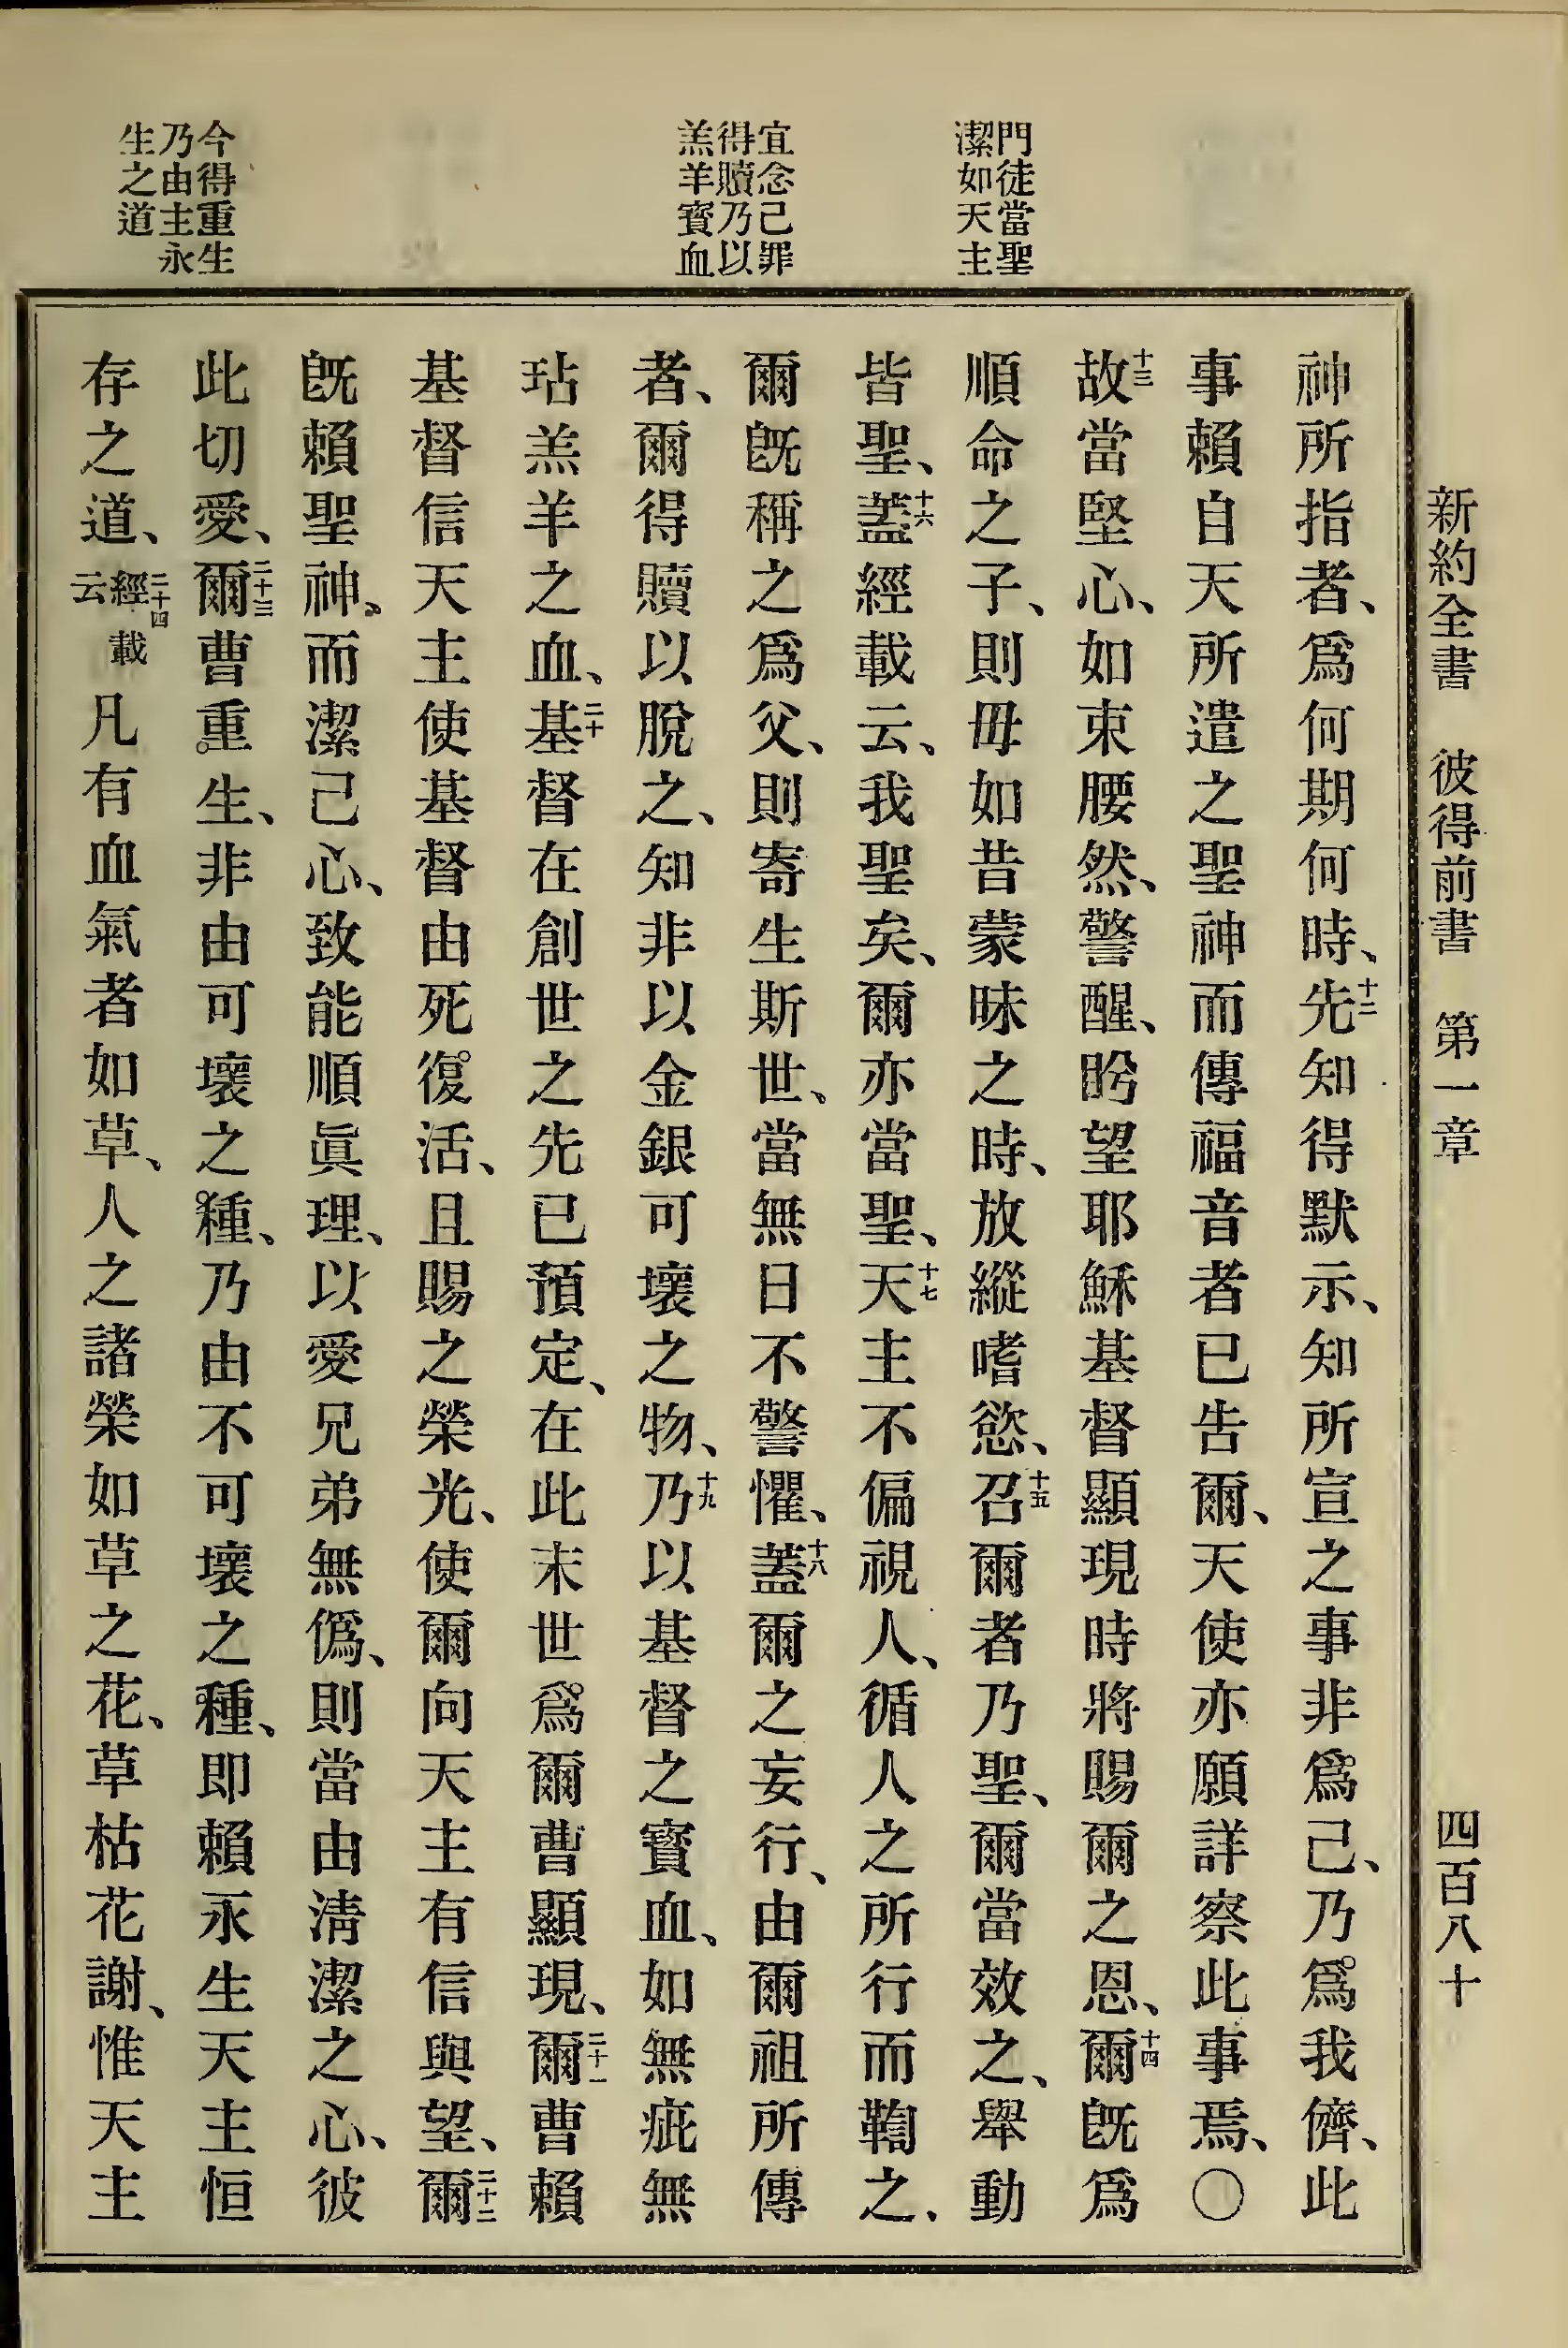 新約全書 彼得前書 第一章 四百八十
門徒當聖
潔如天主
宜念己罪
得贖乃以
羔羊寶血
今得重生
乃由主永
生之道
神所指者、爲何期何時、十二先知得默示、知所宣之事非爲己、乃爲我儕、此
事賴自天所遣之聖神而傳福音者已告爾、天使亦願詳察此事焉、〇
十三故當堅心、如束腰然、警醒、盻望耶穌基督顯現時將賜爾之恩、十四爾旣爲
順命之子、則毋如昔蒙昧之時、放縱嗜慾、十五召爾者乃聖、爾當效之、舉動
皆聖、十六蓋經載云、我聖矣、爾亦當聖、十七天主不偏視人、循人之所行而鞫之、
爾旣稱之爲父、則寄生斯世、當無日不警懼、十八蓋爾之妄行、由爾祖所傳
者、爾得贖以脫之、知非以金銀可壞之物、十九乃以基督之寶血、如無疵無
玷羔羊之血、二十基督在創世之先已預定、在此末世爲爾曹顯現、二十一爾曹賴
基督信天主使基督由死復活、且賜之榮光、使爾向天主有信與望、二十二爾
旣賴聖神、而潔己心、致能順眞理、以愛兄弟無僞、則當由淸潔之心、彼
此切愛、二十三爾曹重生、非由可壞之種、乃由不可壞之種、即賴永生天主恒
存之道、二十四經載云凡有血氣者如草、人之諸榮如草之花、草枯花謝、惟天主